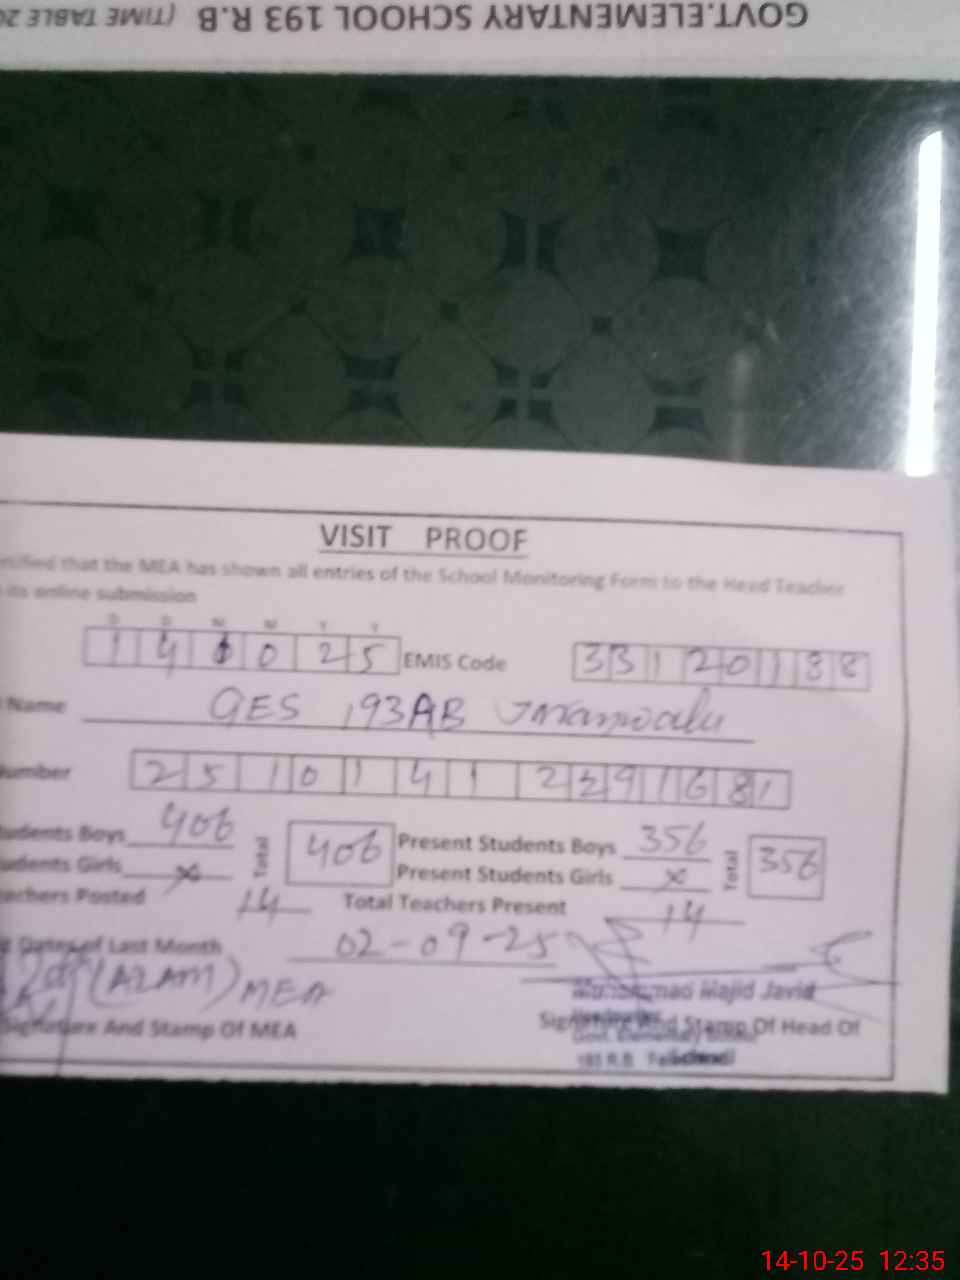 GOVT.ELEMENTARY SCHOOL 193 R.B (TIME TABLE 20
VISIT PROOF
that the MEA has shown all entries of the School Monitoring Form to the Head Teacher
its online submission
D D M M Y Y
1 4 1 0 2 5 EMIS Code 3 3 1 2 0 1 8 8
Name GES 193 RB Jaranwala
umber 2 5 1 0 1 4 1 2 3 9 1 6 8 1
tudents Boys 406 Total 406 Present Students Boys 356 Total 356
udents Girls x Present Students Girls x
achers Posted 14 Total Teachers Present 14
of Last Month 02-09-25
(AZAM) MEA
Majid Javid
Signature And Stamp Of MEA Signature And Stamp Of Head Of
Govt. Elementary School
193 R.B
14-10-25 12:35